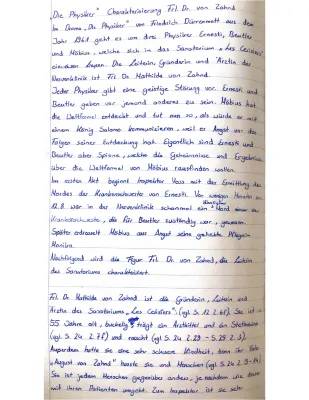 „Die Physiker" Charakterisierung Frl. Dr. von Zahnd
Im Drama „Die Physiker" von Friedrich Dürrenmatt aus dem
Jahr 1961 geht es um drei Physiker Ernesti, Beutler
und Möbius, welche sich in das Sanatorium „Les Cerisiers"
einweisen lassen. Die Leiterin, Gründerin und Ärztin des
Nervenklinik ist Frl. Dr. Mathilde von Zahnd.
Jeder Physiker gibt eine geistige Störung vor. Ernesti und
Beutler geben vor jemand anderes zu sein. Möbius hat
die Weltformel entdeckt und tut nun so, als würde er mit
einem König Salomo kommunizieren, weil er Angst vor den
Folgen seiner Entdeckung hat. Eigentlich sind Ernesti und
Beutler aber Spione, welche die Geheimnisse und Ergebnisse
über die Weltformel von Möbius rausfinden wollen.
Im ersten Akt beginnt Inspektor Voss mit der Ermittlung des
Mordes der Krankenschwester von Ernesti. Vor wenigen Monaten am
12.8. war in der Nervenklinik schonmal ein Mord einer
Krankenschwester, die für Beutler zuständig war, gewesen.
Später erdrosselt Möbius aus Angst seine geliebte Pflegerin
Monika.
Nachfolgend wird die Figur Frl. Dr. von Zahnd, die Leiterin
des Sanatoriums charakterisiert.
Frl. Dr. Mathilde von Zahnd ist die Gründerin, Leiterin und
Ärztin des Sanatoriums „Les Cerisiers" (vgl. S. 12 Z. 6f). Sie ist
55 Jahre alt, bucklig, trägt ein Arztkittel und ein Stethoskop
(vgl. S. 24 Z. 7f) und raucht (vgl. S. 24 Z. 29 - S. 25 Z. 3).
Außerdem hatte sie eine sehr schwere Kindheit, denn ihr Vater
„August von Zahnd" hasste sie und Menschen (vgl. S. 24 Z. 9-14)
Sie ist jedem Menschen gegenüber anders, je nachdem wie
mit ihren Patienten umgeht. Zum Inspektor ist sie sehr